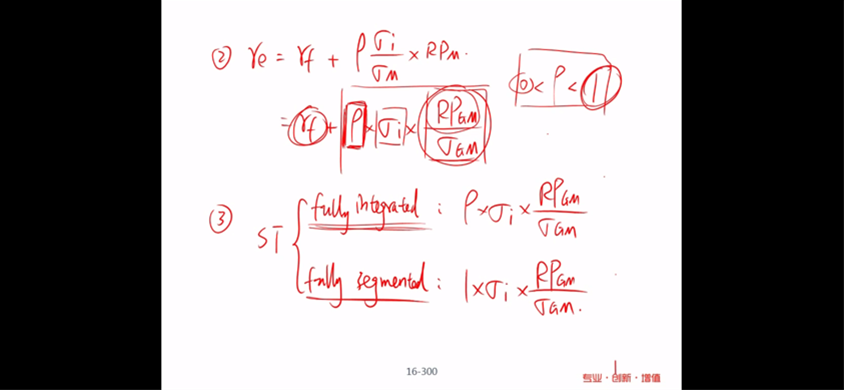 ② re = rf + ρ σi/σM × RPM.
0 < ρ < 1
= rf + ρ × σi × RPGM/σGM
③ ST { fully integrated : ρ × σi × RPGM/σGM
fully segmented : 1 × σi × RPGM/σGM.
16-300
专业·创新·增值